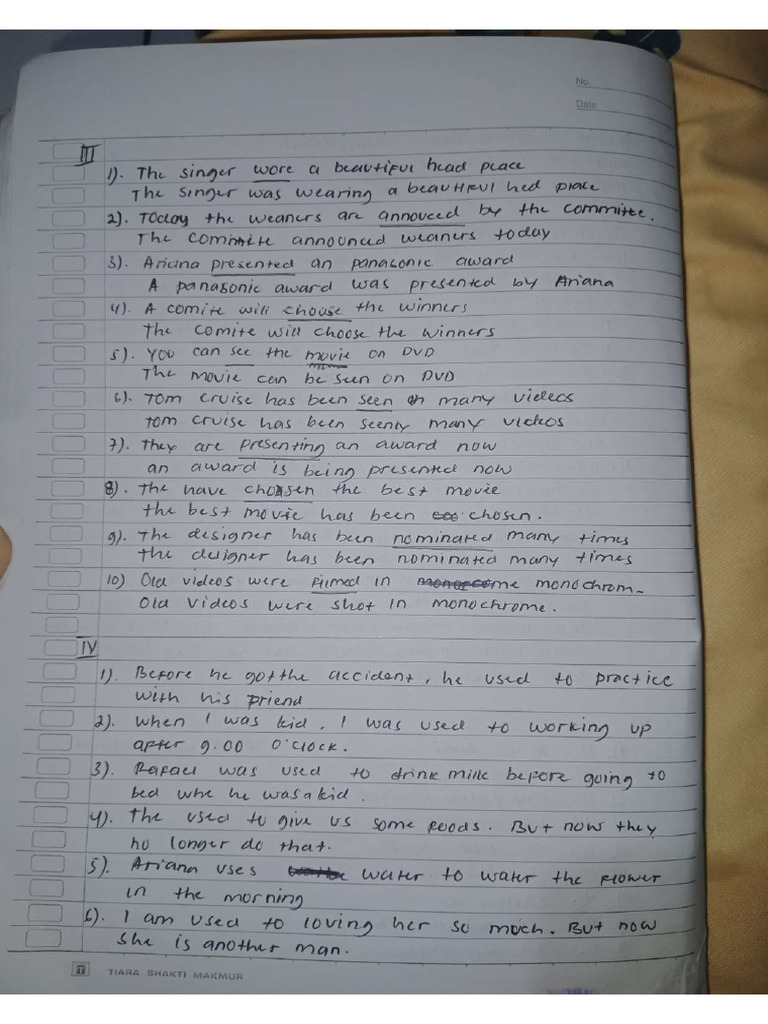 No:
Date
III
1). The singer wore a beautiful head peace
The singer was wearing a beautiful hed piace
2). Today the weaners are annouced by the committee.
The committe announced weaners today
3). Ariana presented an panasonic award
A panasonic award was presented by Ariana
4). A comite will choose the winners
The comite will choose the winners
5). You can see the movie on DVD
The movie can be seen on DVD
6). Tom cruise has been seen in many videos
Tom cruise has been seenly many videos
7). They are presenting an award now
an award is being presented now
8). The have chosen the best movie
The best movie has been chosen.
9). The designer has been nominated many times
The designer has been nominated many times
10) Old videos were filmed in monochrom.
Old videos were shot in monochrome.
IV
1). Before he got the accident, he used to practice
with his friend
2). When I was kid, I was used to working up
after 9.00 O'clock.
3). Rafael was used to drink milk before going to
bed whe he was a kid.
4). The used to give us some foods. But now they
no longer do that.
5). Ariana uses water to water the flower
in the morning
6). I am used to loving her so much. But now
she is another man.
TIARA SHAKTI MAKMUR